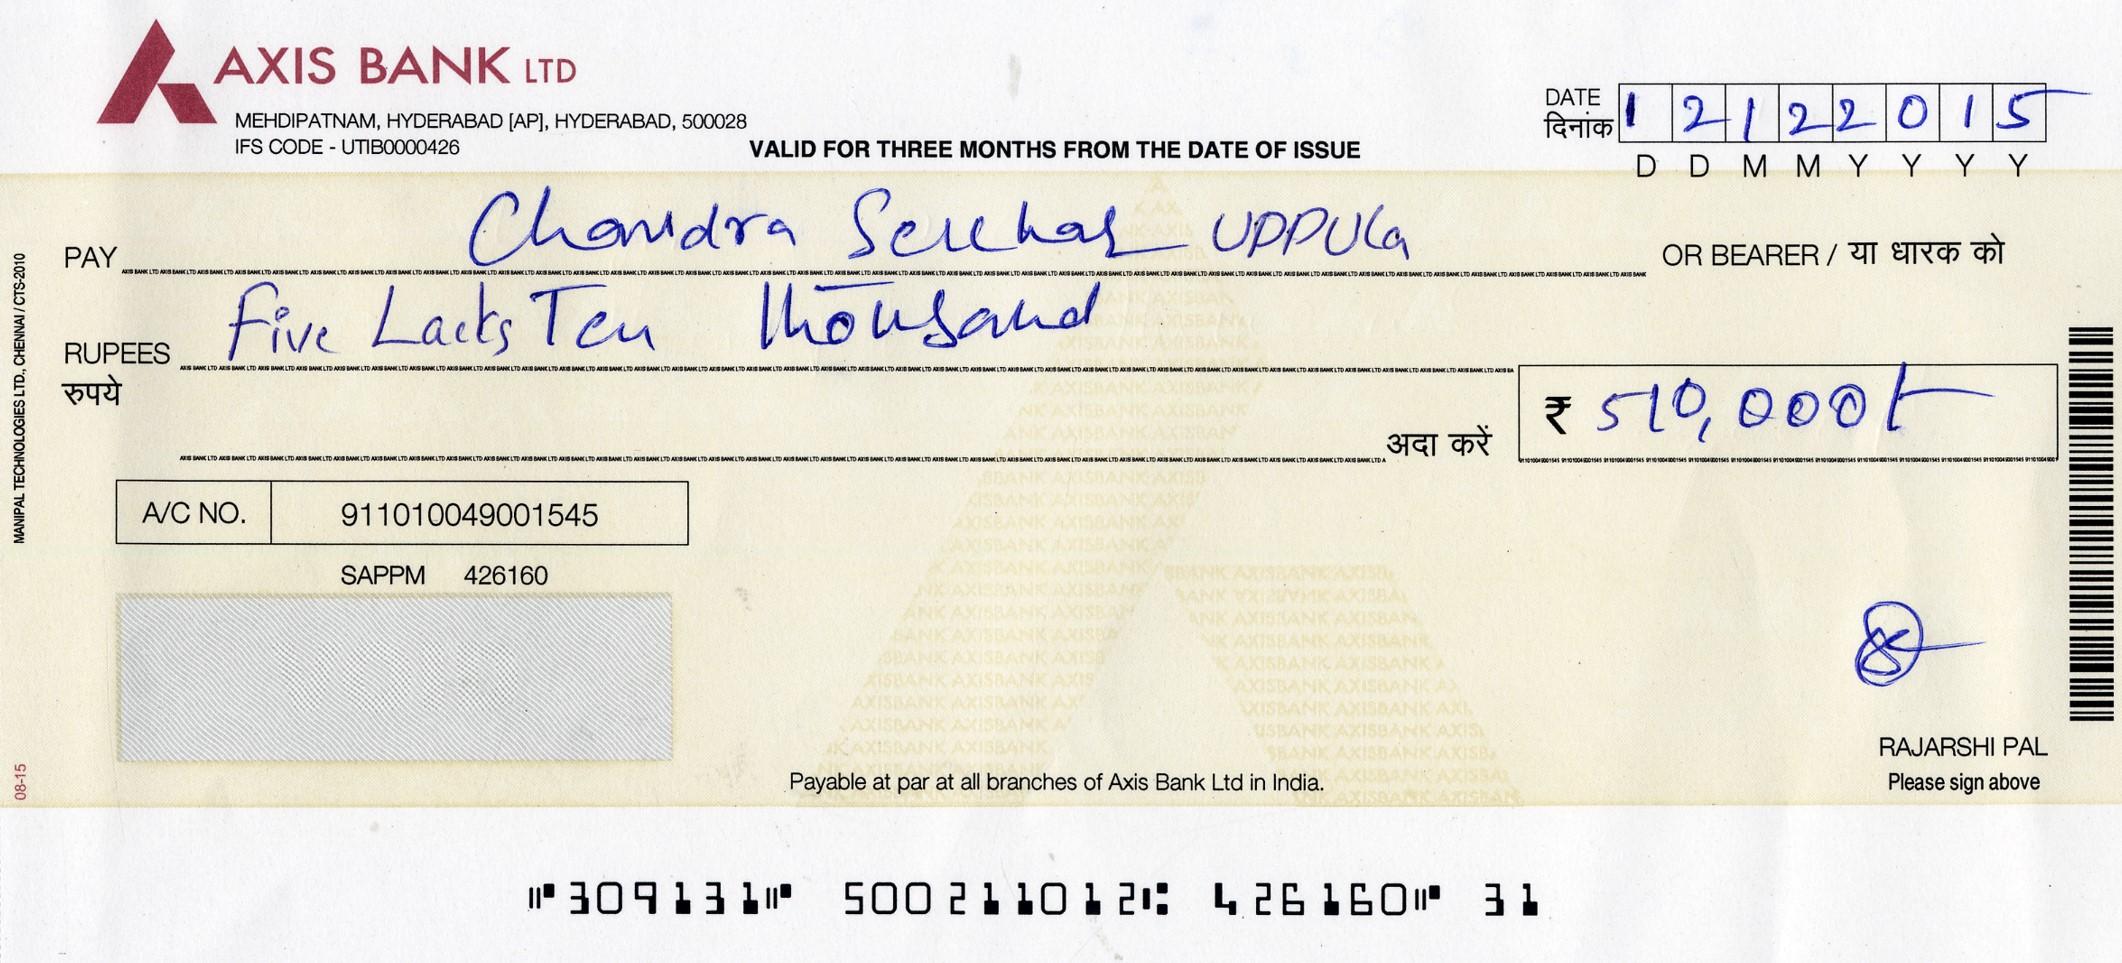 AXIS BANK LTD
MEHDIPATNAM, HYDERABAD [AP], HYDERABAD, 500028
IFS CODE - UTIB0000426
VALID FOR THREE MONTHS FROM THE DATE OF ISSUE
DATE
दिनांक
1 2 1 2 2 0 1 5
D D M M Y Y Y Y
PAY Chandra Sekhar UPPULa OR BEARER / या धारक को
RUPEES Five Lacks Ten Thousand
रुपये
अदा करें ₹ 510,000/-
A/C NO. 911010049001545
SAPPM 426160
RAJARSHI PAL
Please sign above
Payable at par at all branches of Axis Bank Ltd in India.
MANIPAL TECHNOLOGIES LTD., CHENNAI / CTS-2010
08-15
⑈309131⑈ 500211012⑆ 426160⑈ 31